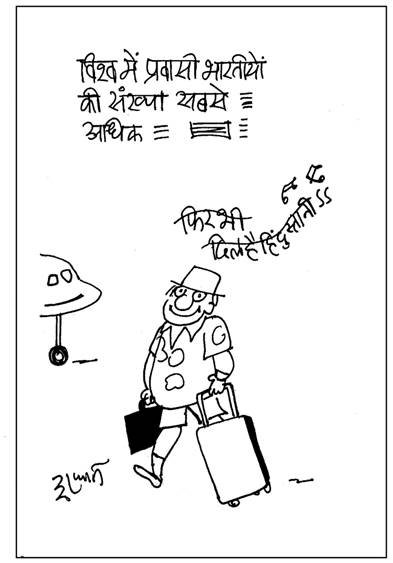 विश्व में प्रवासी भारतीयों
की संख्या सबसे
अधिक
फिर भी
दिल है हिंदुस्तानीऽऽ
G